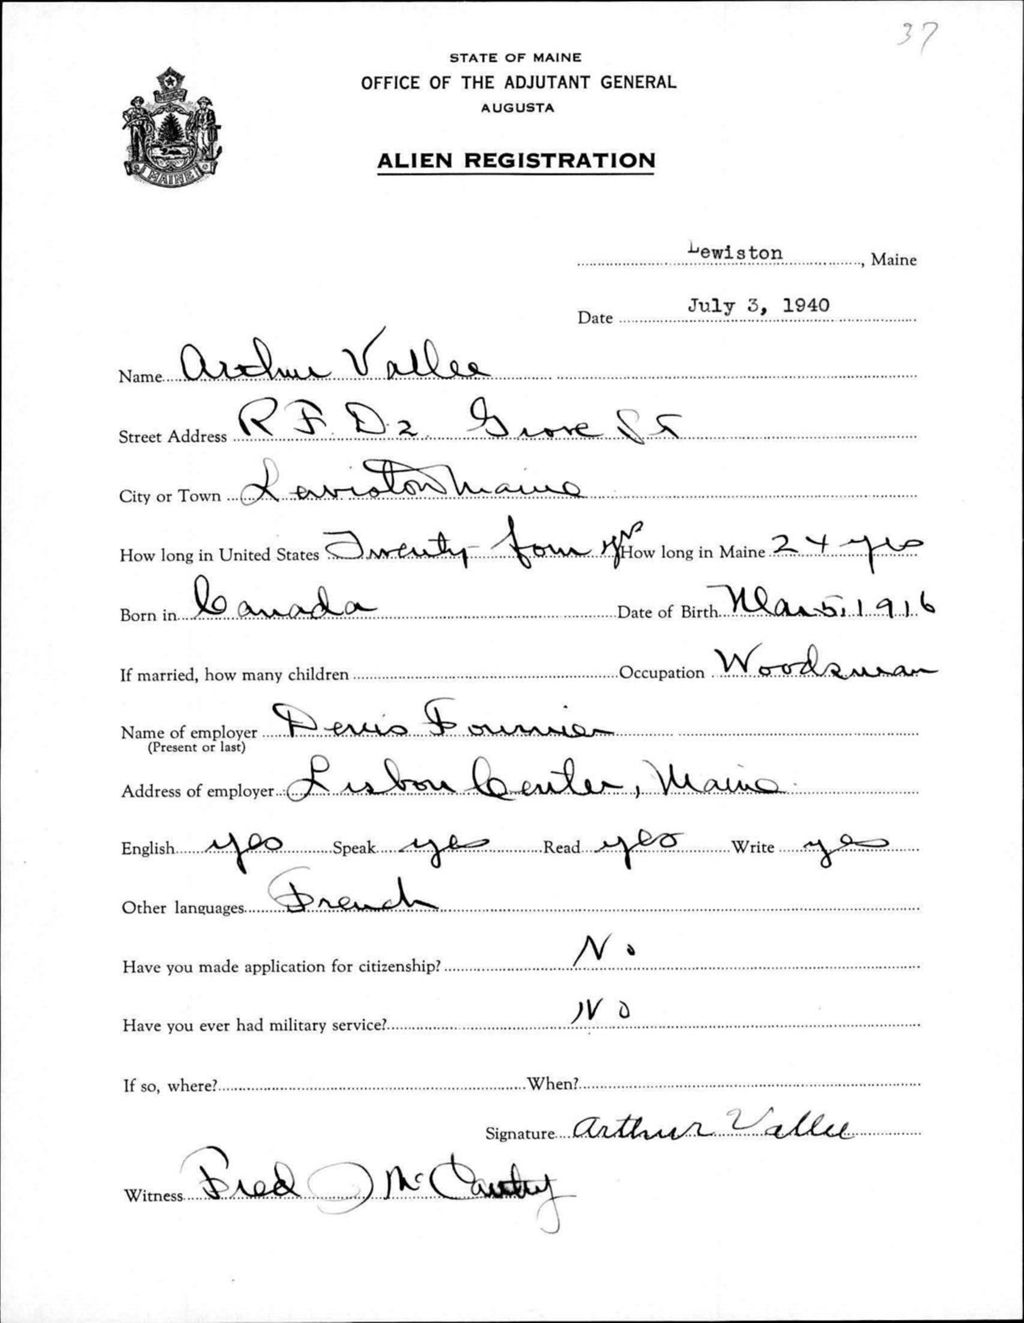 37
STATE OF MAINE
OFFICE OF THE ADJUTANT GENERAL
AUGUSTA
MAINE
ALIEN REGISTRATION
Lewiston, Maine
Date July 3, 1940
Name Arthur Vallee
Street Address R F D 2 Grove St
City or Town Lewiston Maine
How long in United States Twenty four yrs How long in Maine 24 yes
Born in Canada Date of Birth Mar 5, 1916
If married, how many children Occupation Woodsman
Name of employer Denis Fournier
(Present or last)
Address of employer Lisbon Center, Maine
English yes Speak yes Read yes Write yes
Other languages French
Have you made application for citizenship? No
Have you ever had military service? No
If so, where? When?
Signature Arthur Vallee
Witness Fred J McCarthy